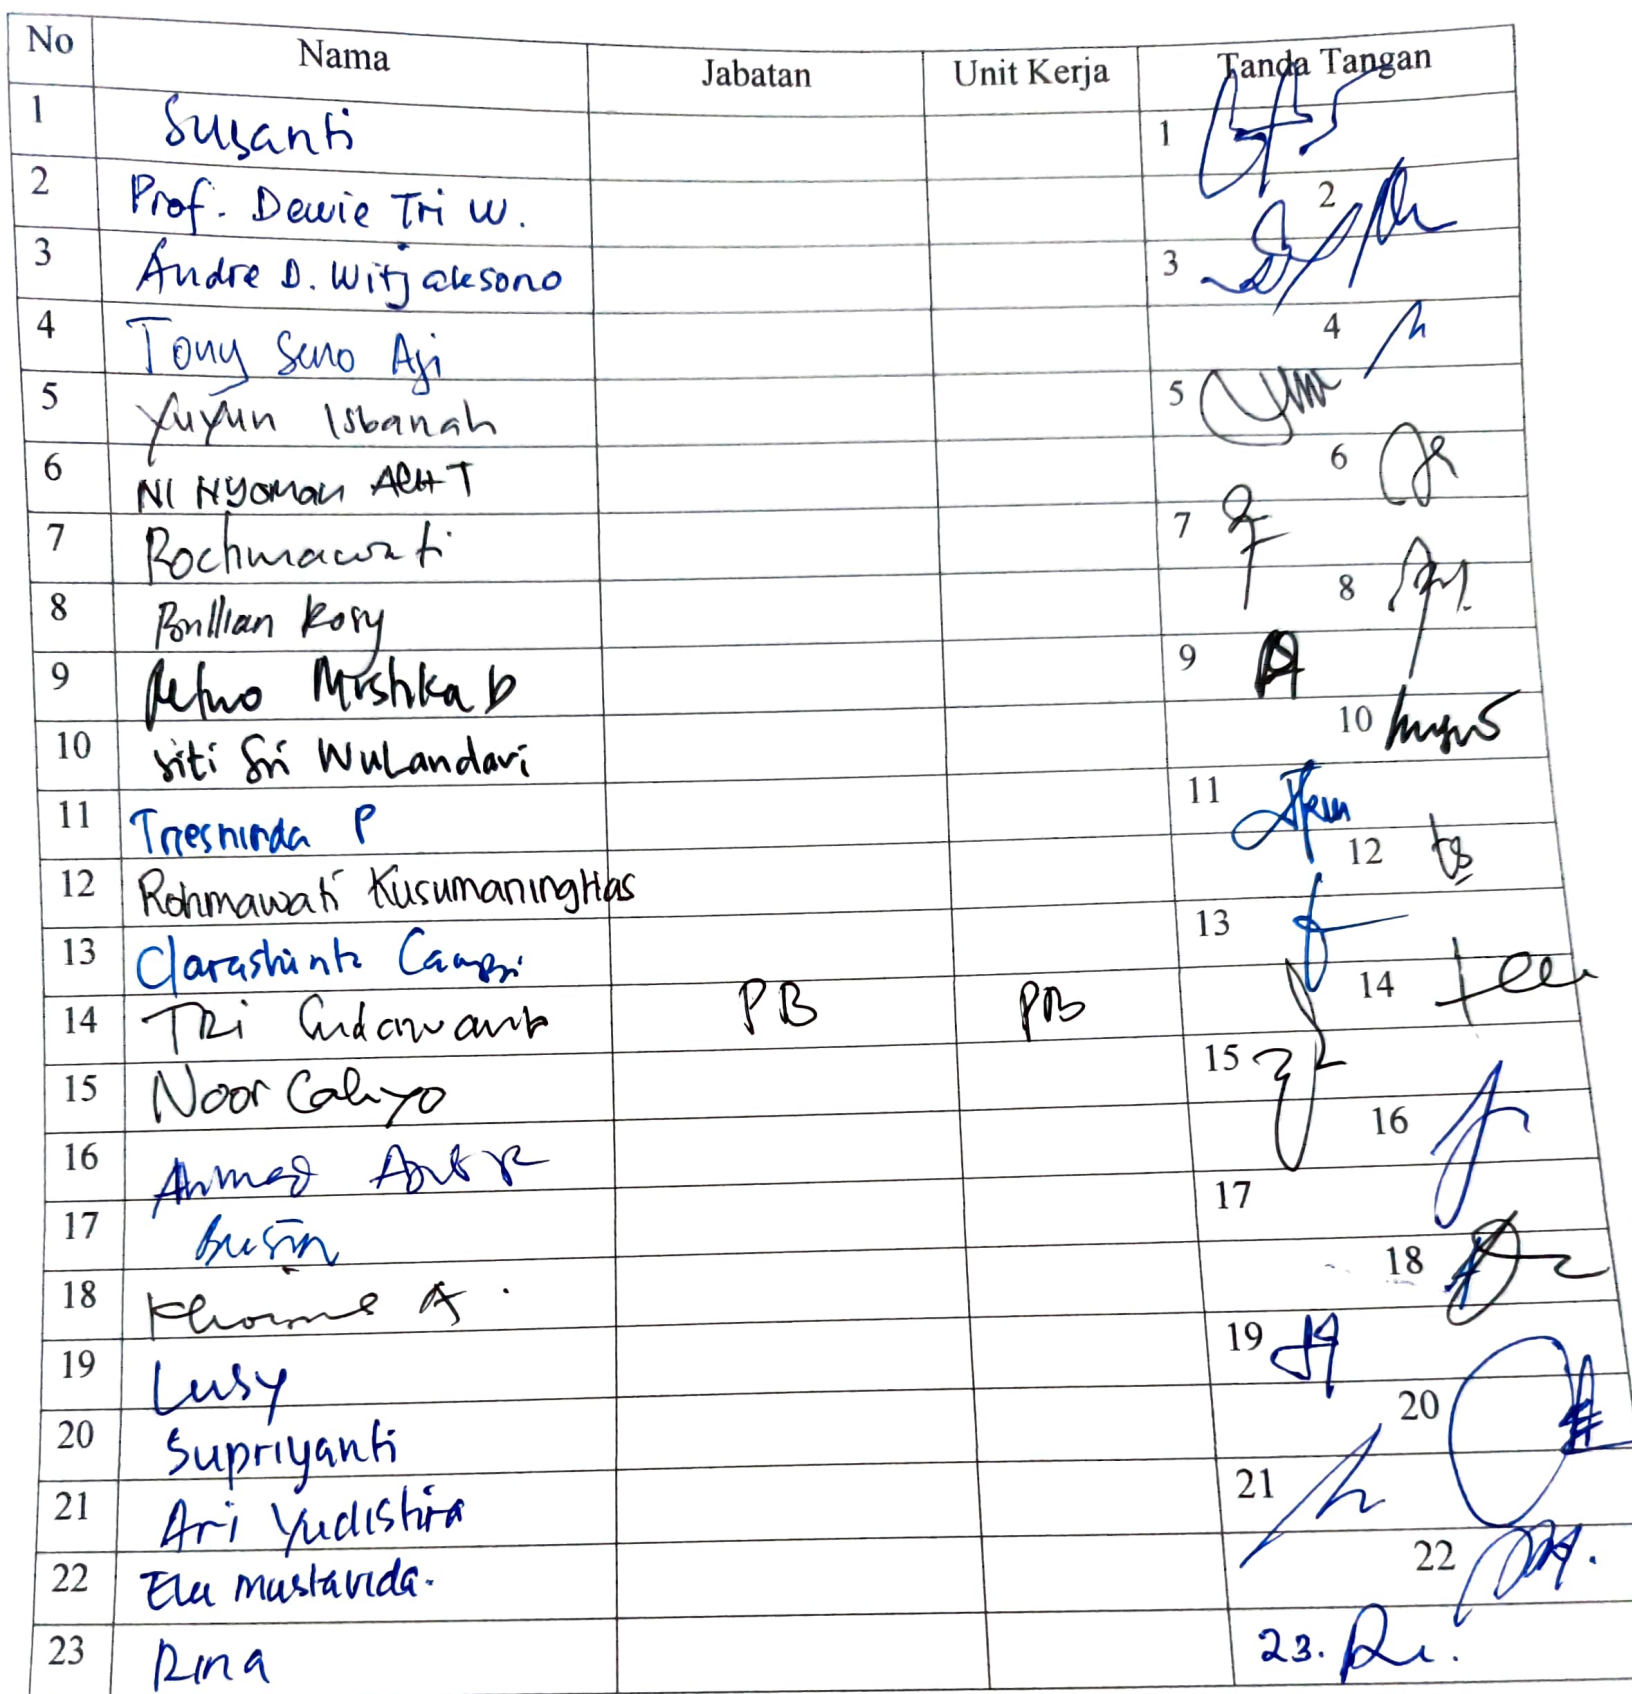 No Nama Jabatan Unit Kerja Tanda Tangan
1 Susanti 1
2 Prof. Dewie Tri W. 2
3 Andre D. Witjaksono 3
4 Tony Seno Aji 4
5 Yuyun Isbanah 5
6 NI NYOMAN ALIT T 6
7 Rochmawati 7
8 Brillian Rosy 8
9 Retno Mustika D 9
10 Siti Sri Wulandari 10
11 Triesninda P 11
12 Rohmawati Kusumaningtias 12
13 Clarashinta 13
14 TRI PB PB 14
15 Noor Cahyo 15
16 Ahmad 16
17 17
18 A. 18
19 Lusy 19
20 Supriyanti 20
21 Ari Yudistira 21
22 Ela Mustavida. 22
23 Rina 23.